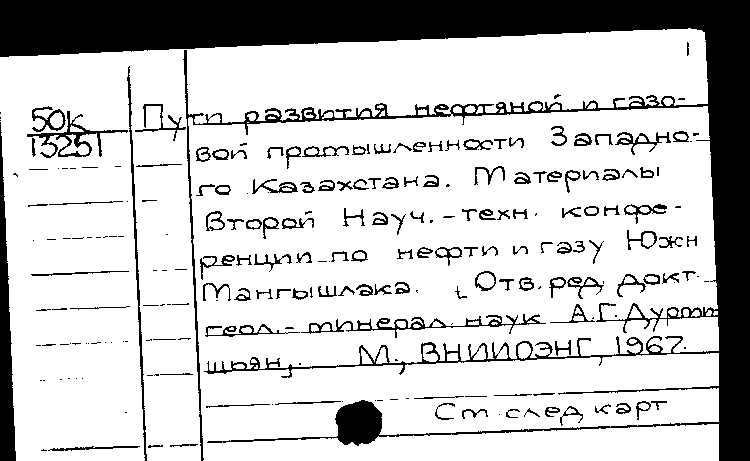 1
50К
13251
Пути развития нефтяной и газо-
вой промышленности Западно-
го Казахстана. Материалы
Второй Науч.-техн. конфе-
ренции по нефти и газу Южн
Мангышлака. [Отв. ред. докт.
геол.-минерал. наук А.Г. Дурми-
шьян].  М., ВНИИОЭНГ, 1967.
См. след. карт